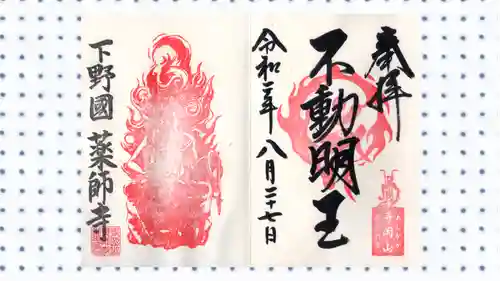 奉拝
不動明王
令和二年八月二十七日
下野國薬師寺